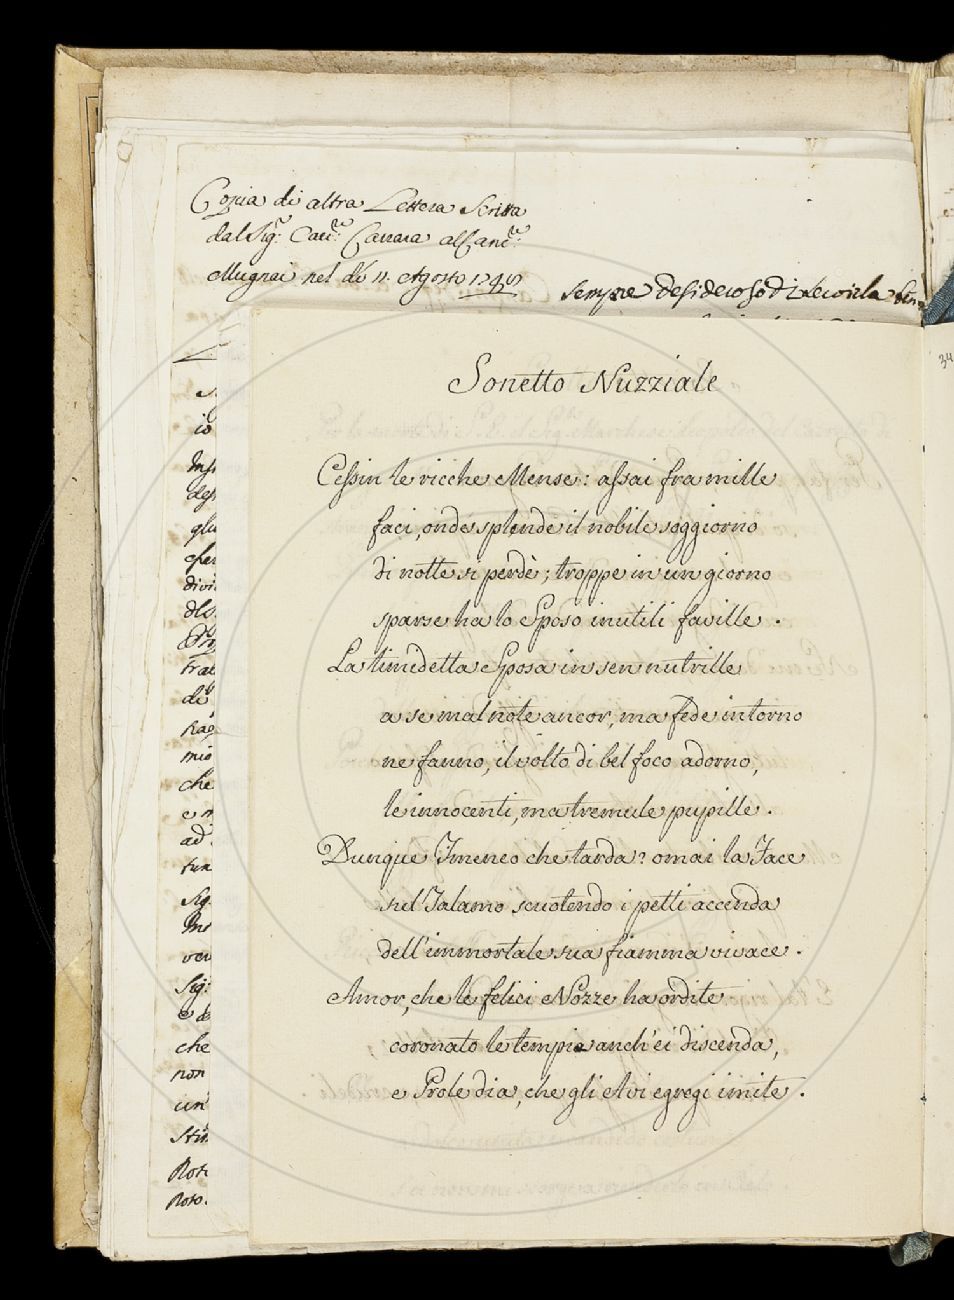 Copia di altra Lettera Scritta
dal Sig.r Carrara al
Mugnai nel dì 11. Agosto
Sempre desideroso di
34
Sonetto Nuzziale
Cessin le ricche Mense: assai fra mille
faci, onde splende il nobile soggiorno
di notte si perdè; troppe in un giorno
sparse ha lo Sposo inutili faville.
La timidetta Sposa in sen nutrille
a se mal note ancor, ma fede intorno
ne fanno, il volto di bel foco adorno,
le innocenti, ma tremule pupille.
Dunque Imeneo che tarda? omai la Face
sul Talamo scuotendo i petti accenda
dell'immortale sua fiamma vivace.
Amor, che le felici Nozze ha ordite
coronato le tempie anch'ei discenda,
e Prole dia, che gli Avi egregi imite.
io
che
ad
Sig:
che
non
un